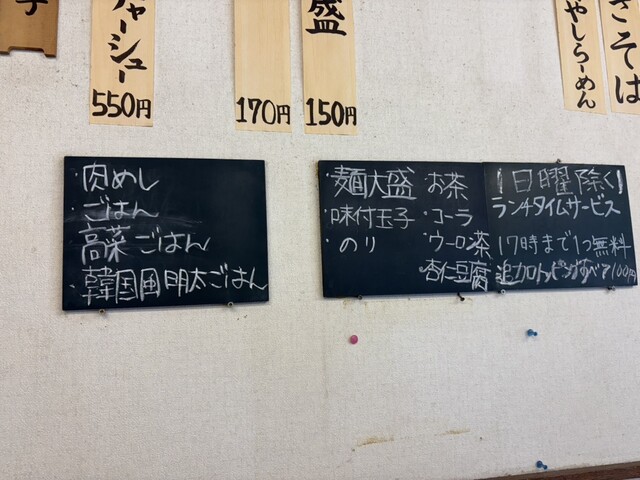 チャーシュー
550円
170円
盛
150円
やしらーめん
きそば
・肉めし
・ごはん
・高菜ごはん
・韓国風明太ごはん
・麺大盛
・味付玉子
・のり
・お茶
・コーラ
・ウーロン茶
・杏仁豆腐
(日曜除く)
ランチタイムサービス
17時まで1つ無料
追加トッピングすべて100円